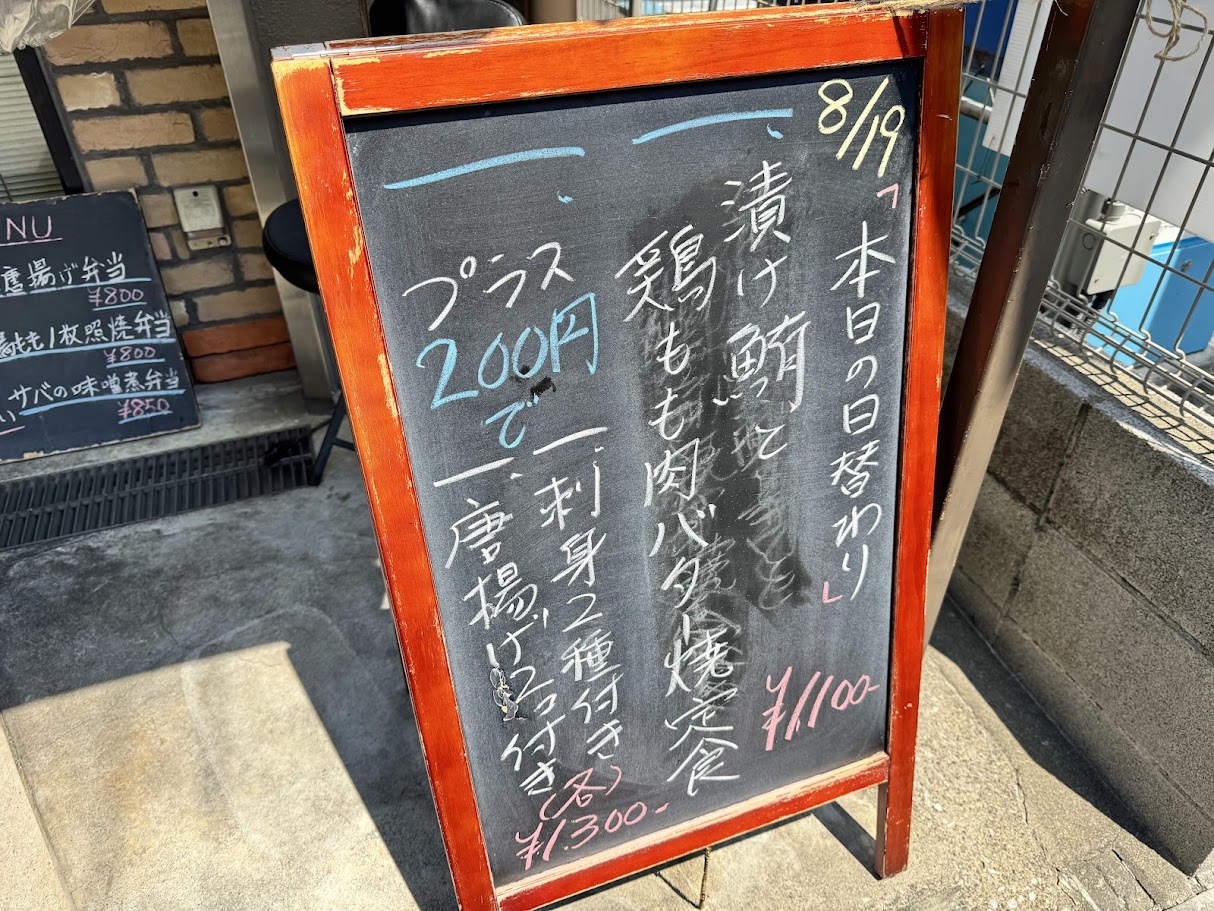 8/19
「本日の日替わり」
一、漬け鮪と
鶏もも肉バター焼定食
¥1,100-
一、プラス
200円
で
一、刺身2種付き
一、唐揚げ2コ付き
(各)
¥1,300-
NU
唐揚げ弁当
¥800
1枚照焼弁当
¥800
サバの味噌煮弁当
¥850